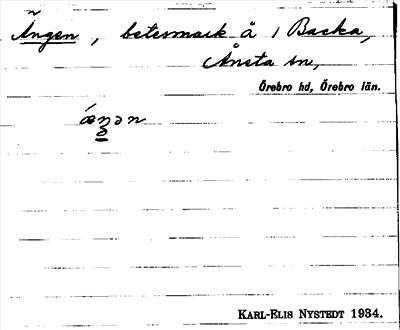 Ängen, betesmark å 1 Backa,
Ånsta sn,
Örebro hd, Örebro län.
KARL-ELIS NYSTEDT 1934.